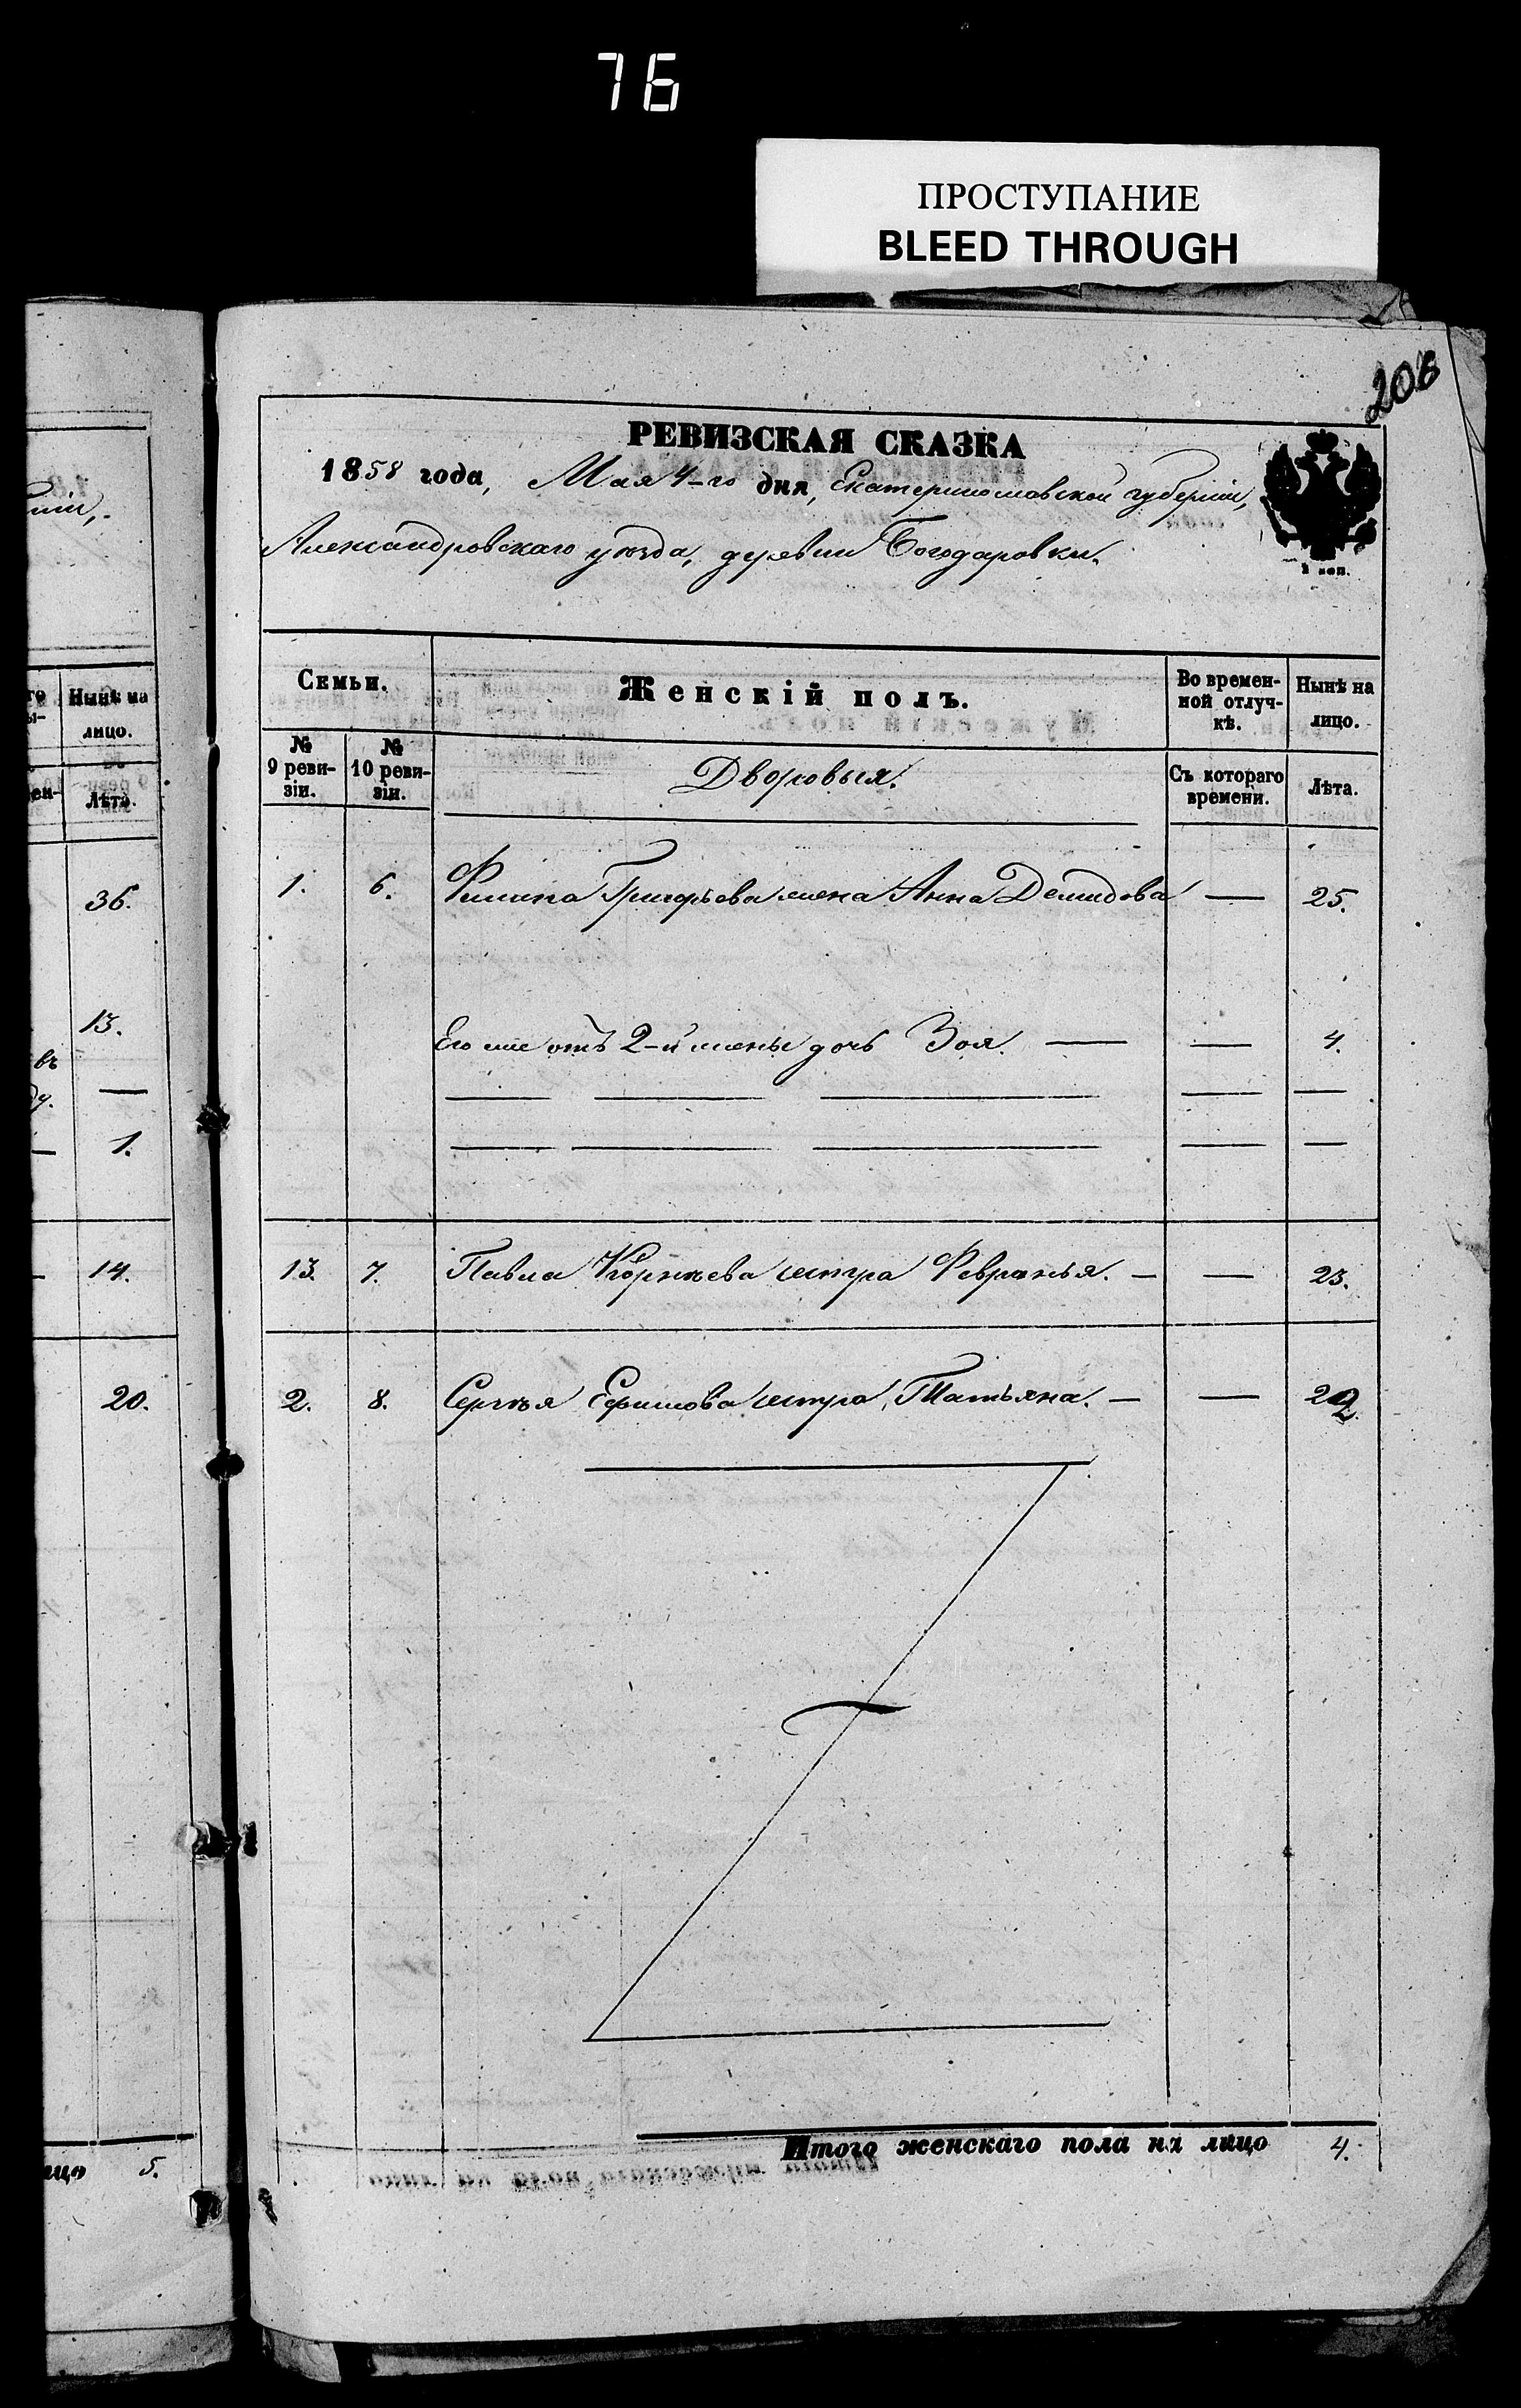 76
ПРОСТУПАНИЕ
BLEED THROUGH
206
РЕВИЗСКАЯ СКАЗКА
1858 года, Мая 4-го дня, Екатеринославской губерніи,
Александровскаго уѣзда, деревни Богодаровки.
Семьи.
Женскій полъ.
Во времен-
ной отлуч-
кѣ.
Нынѣ на
лицо.
№
9 реви-
зіи.
№
10 реви-
зіи.
Дворовыя.
Съ котораго
времени.
Лѣта.
1. 6. Филипа Григорьева жена Анна Демидова — 25.
Его же отъ 2-й жены дочь Зоя. — — 4.
13. 7. Павла Корнѣева сестра Февронья. — — 23.
2. 8. Сергѣя Ефимова сестра Татьяна. — — 22
Итого женскаго пола на лицо 4.
Нынѣ на
лицо.
Лѣта.
36.
13.
въ
—
1.
14.
20.
5.